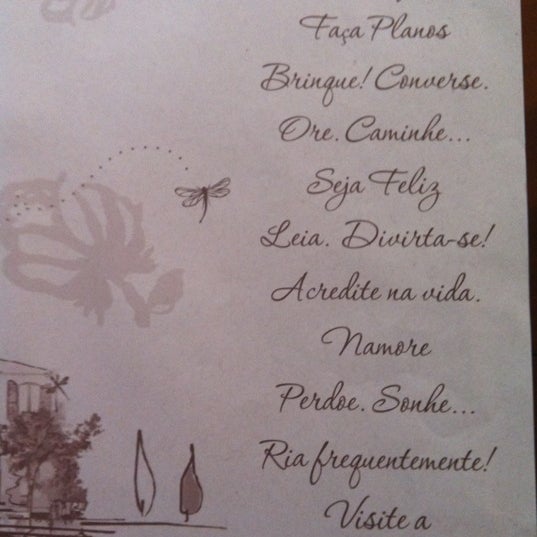 Faça Planos
Brinque! Converse.
Ore. Caminhe...
Seja Feliz
Leia. Divirta-se!
Acredite na vida.
Namore
Perdoe. Sonhe...
Ria frequentemente!
Visite a